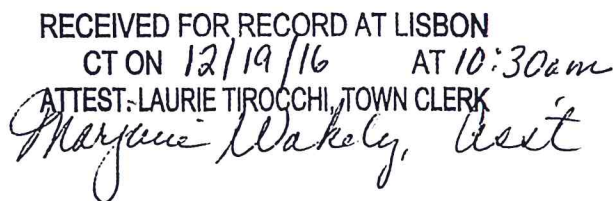 RECEIVED FOR RECORD AT LISBON
CT ON 12/19/16 AT 10:30am
ATTEST: LAURIE TIROCCHI, TOWN CLERK
Marjorie Wakely, Asst